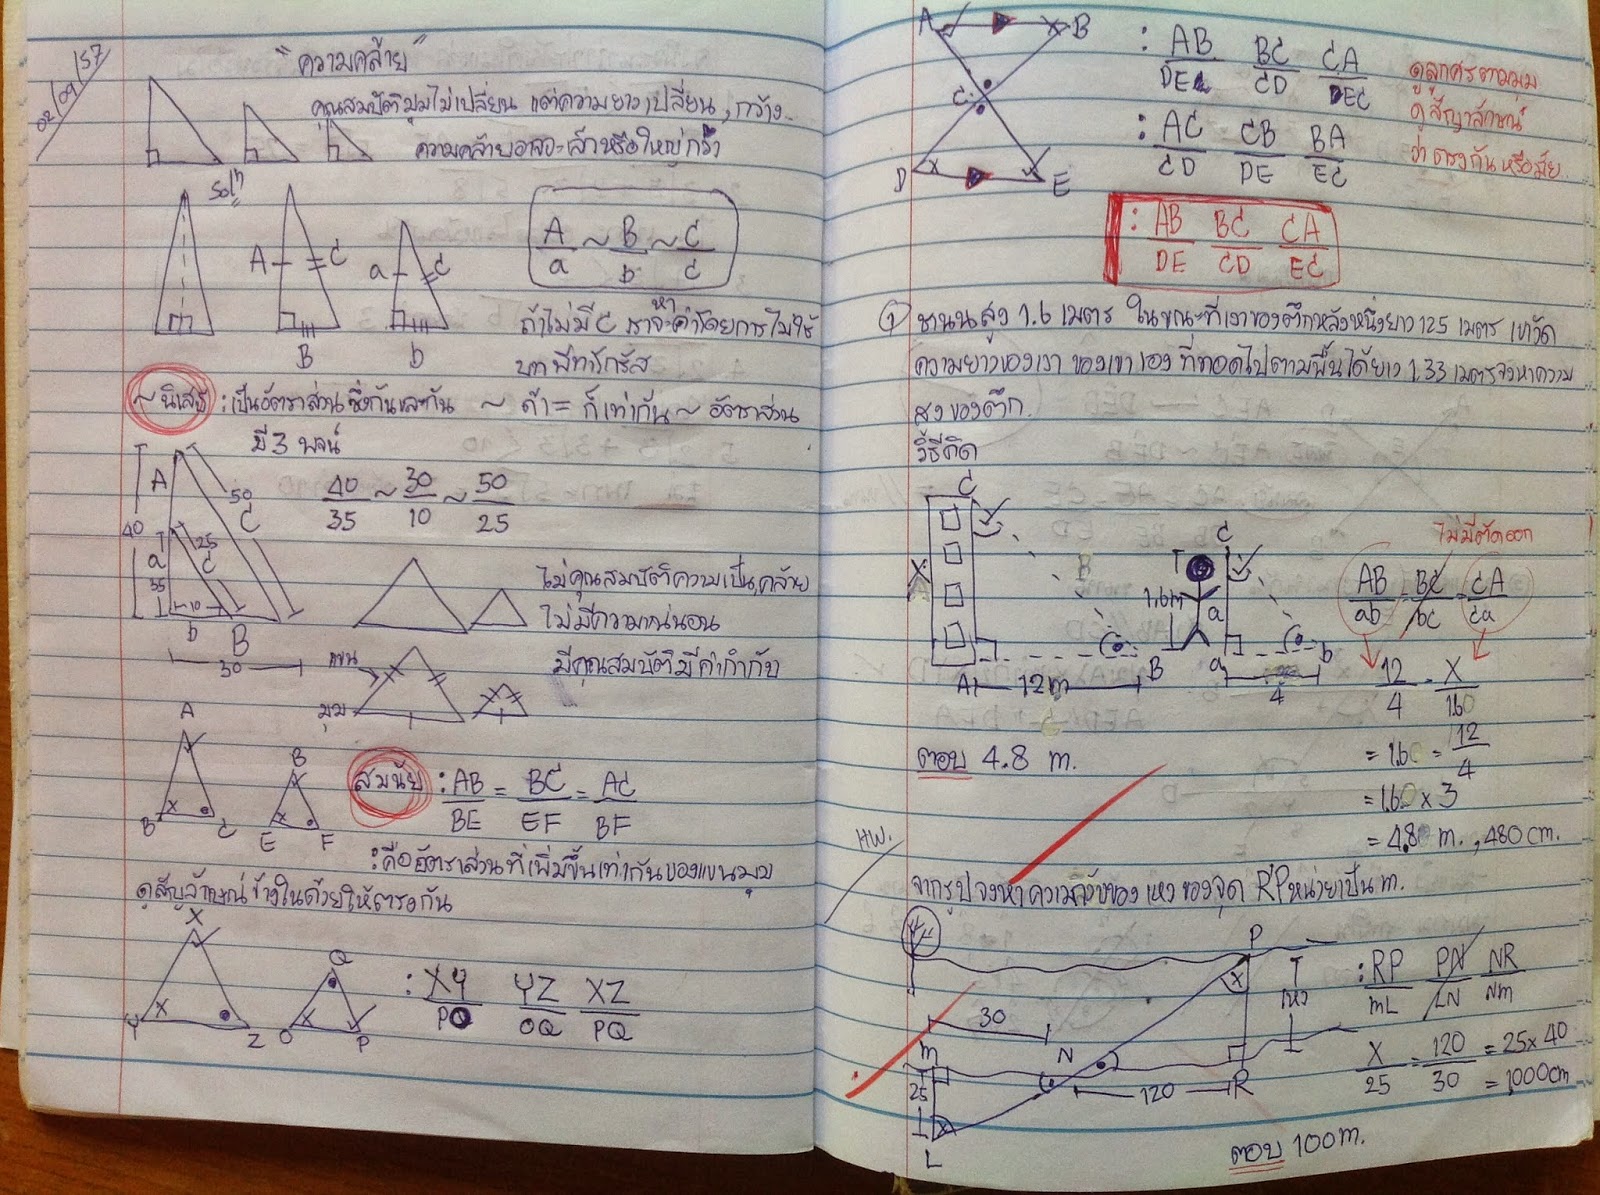 02/09/57
"ความคล้าย"
คุณสมบัติมุมไม่เปลี่ยน แต่ความยาวเปลี่ยน, กว้าง
ความคล้ายอาจจะเล็กหรือใหญ่กว่า
soln
A C
B
a c
b
A/a ~ B/b ~ C/c
ถ้าไม่มี C เราจะหาค่าโดยการไปใช้
บทพีทาโกรัส
~ นิเสธ : เป็นอัตราส่วนซึ่งกันและกัน ~ ถ้า = ก็เท่ากัน ~ อัตราส่วน
มี 3 พจน์
A
50
C
40
25
a c
35
10
b B
30
40/35 ~ 30/10 ~ 50/25
ไม่คุณสมบัติความเป็นคล้าย
ไม่มีความแน่นอน
แขน
มุม
มีคุณสมบัติมีค่ากำกับ
A
B C
B
E F
สมนัย : AB/BE = BC/EF = AC/BF
: คืออัตราส่วนที่เพิ่มขึ้นเท่ากันของแขนมุม
ดูสัญลักษณ์ข้างในด้วยให้ตรงกัน
X
Y Z
Q
O P
: XY/PQ YZ/OQ XZ/PQ
A B
C
D E
: AB/DE BC/CD CA/DEC
: AC/CD CB/DE BA/EC
: AB/DE BC/CD CA/EC
ดูลูกศรตามมุม
ดูสัญลักษณ์
ว่าตรงกันหรือมั้ย
1 ชานนสูง 1.6 เมตร ในขณะที่เงาของตึกหลังหนึ่งยาว 125 เมตร เขาวัด
ความยาวของเงา ของเขาเอง ที่ทอดไปตามพื้นได้ยาว 1.33 เมตร จงหาความ
สูงของตึก
วิธีคิด
C
X
A
12m
B
1.6m
C
a
a
4
b
ไม่มีตัดออก
AB/ab = BC/bc = CA/ca
12/4 = X/1.60
= 1.60 = 12/4
= 1.60 x 3
= 4.80 m. , 480 cm.
ตอบ 4.8 m.
HW.
จากรูปจงหาความ ของ เหว ของจุด RP หน่วยเป็น m.
P
X
เหว
30
m
N
25
120
R
L
: RP/mL PN/LN NR/Nm
X/25 = 120/30 = 25 x 40
= 1,000 cm
ตอบ 100 m.